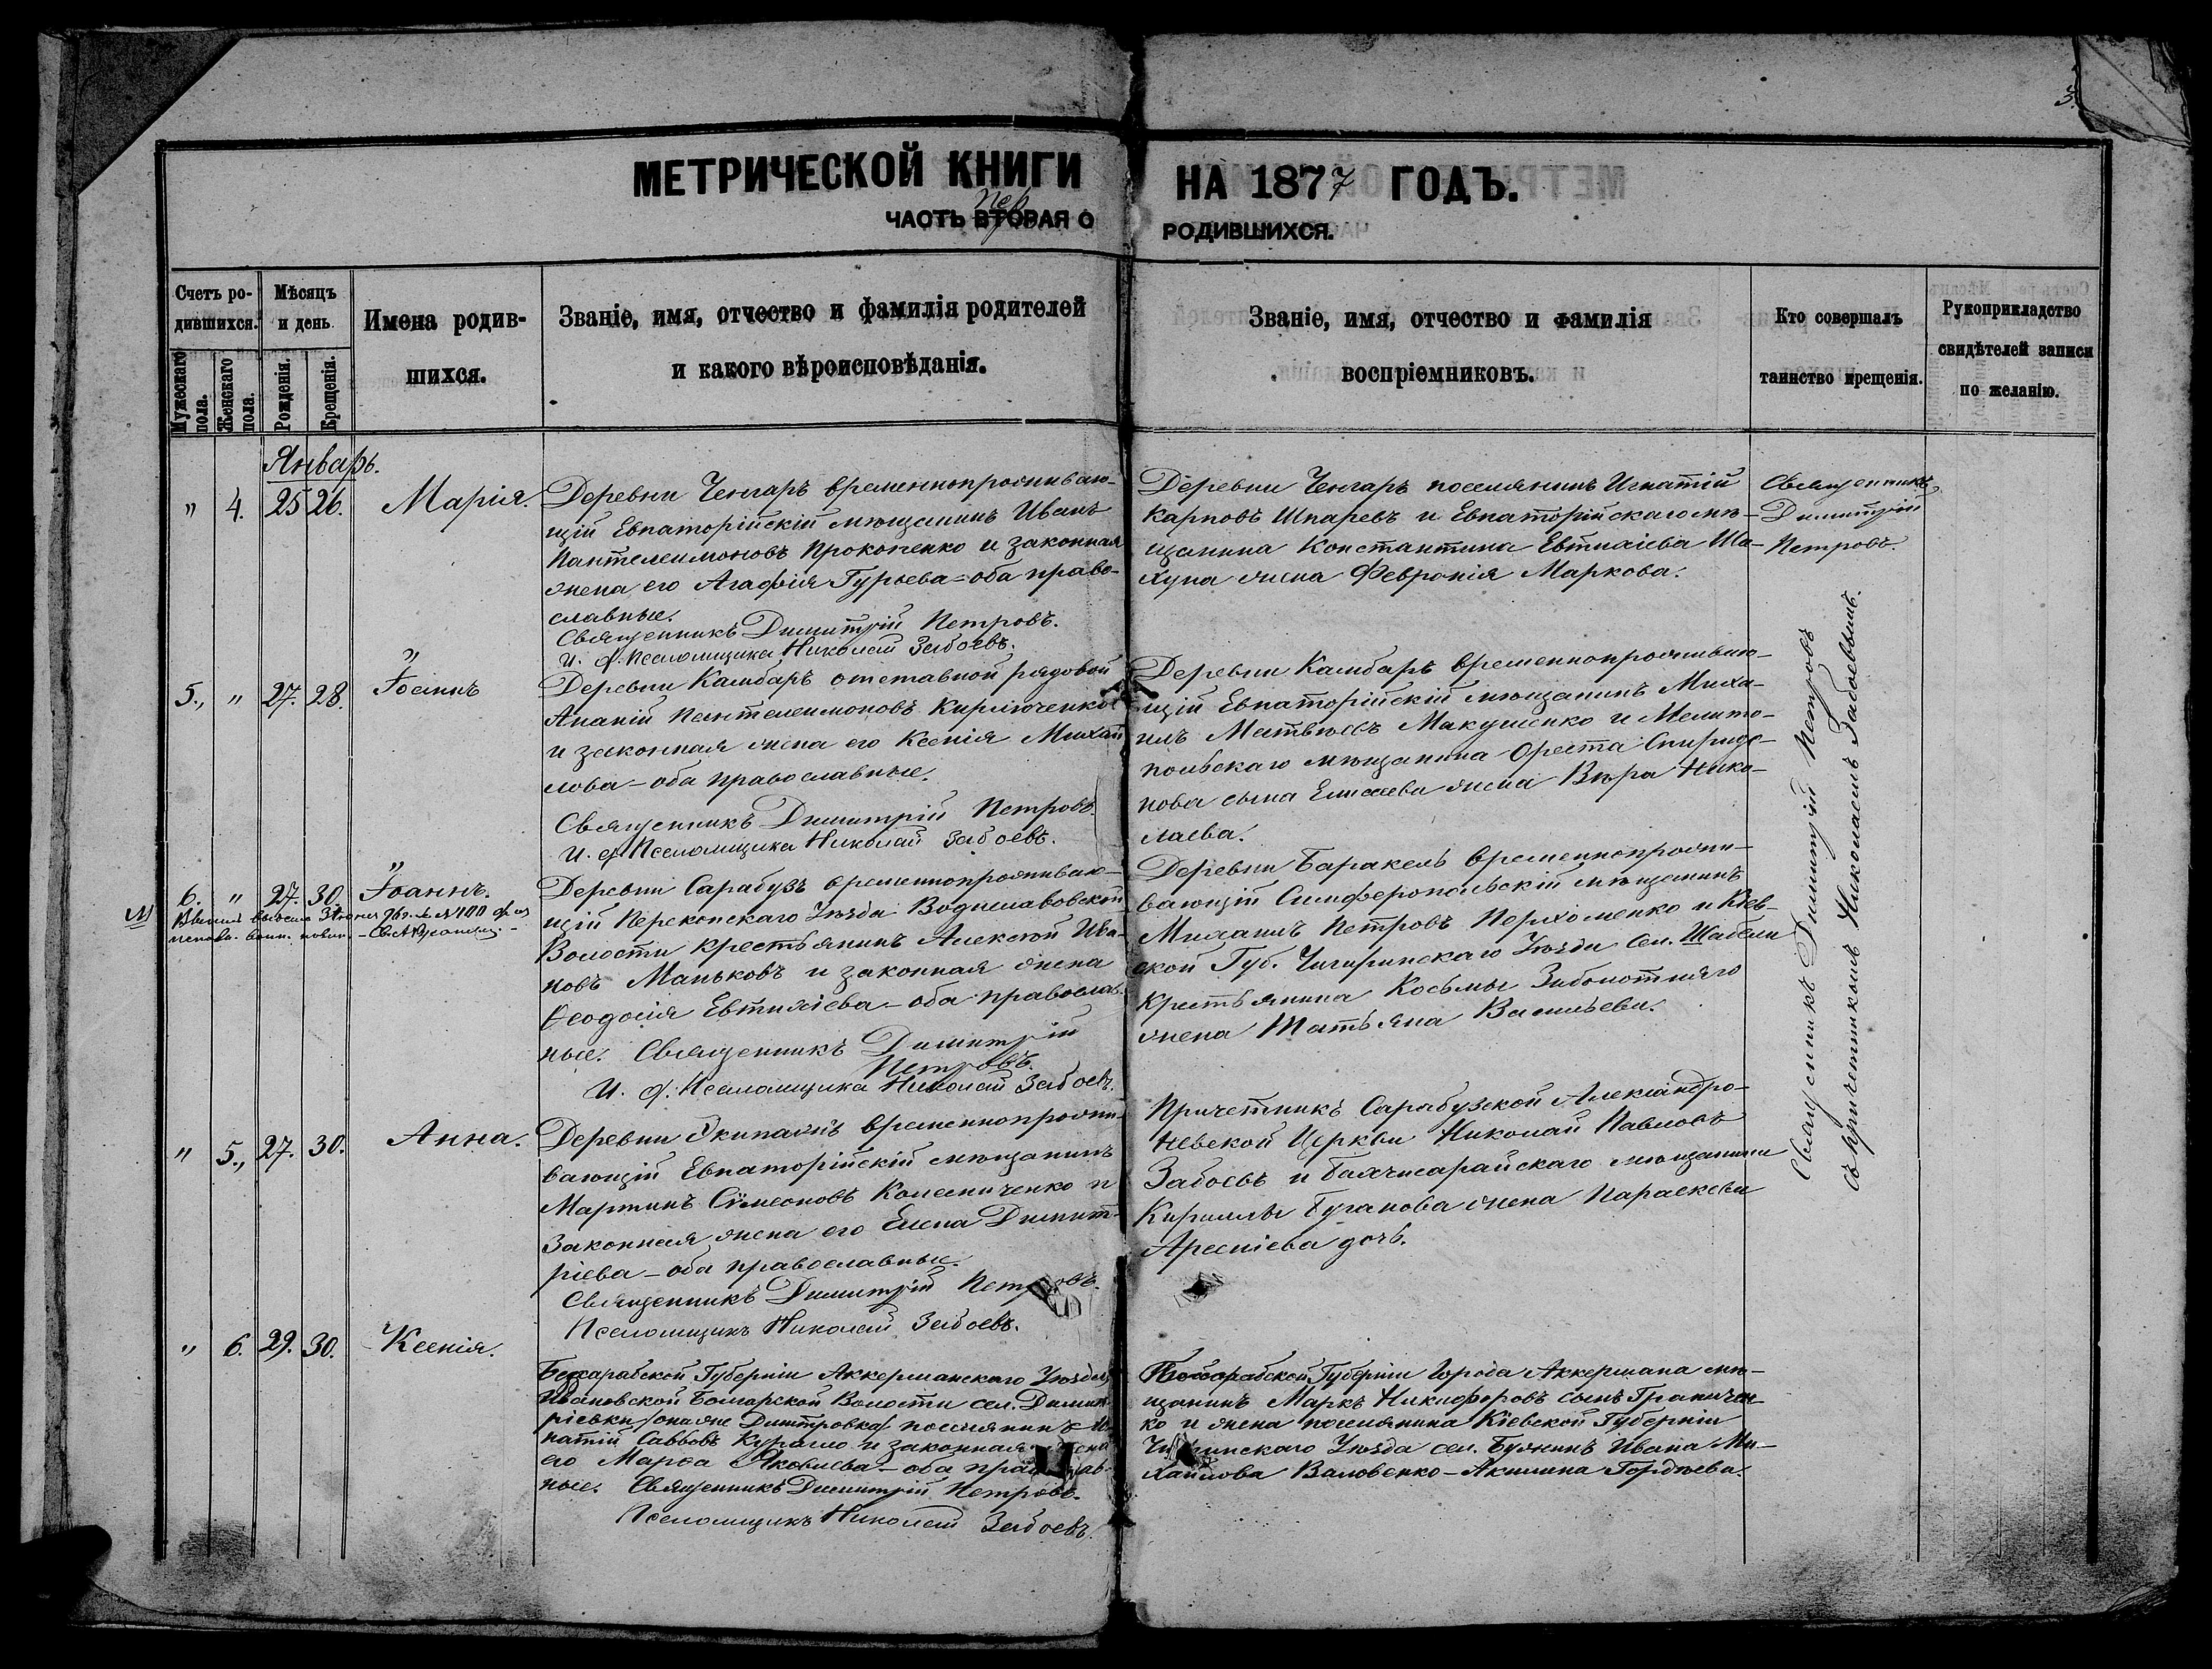 МЕТРИЧЕСКОЙ КНИГИ НА 1877 ГОДЪ.
ЧАСТЬ ВТОРАЯ О РОДИВШИХСЯ.
Пер
3.
Счетъ ро-
дившихся.
Мужескаго пола.
Женскаго пола.
Мѣсяцъ
и день
Рожденія.
Крещенія.
Имена родив-
шихся.
Званіе, имя, отчество и фамилія родителей
и какого вѣроисповѣданія.
Званіе, имя, отчество и фамилія
воспріемниковъ.
Кто совершалъ
таинство крещенія.
Рукоприкладство
свидѣтелей записи
по желанію.
Январь.
" 4. 25 26. Марія.
Деревни Ченгаръ временнопроживаю-
щій Евпаторійскій мѣщанинъ Иванъ
Пантелеимоновъ Прокопенко и законная
жена его Агафія Гурьева=оба право-
славные.
Священникъ Димитрій Петровъ.
и. д. Псаломщика Николай Забоевъ.
Деревни Ченгаръ поселянинъ Игнатій
Карповъ Шпаревъ и Евпаторійскаго мѣ-
щанина Константина Евтихіева Ша-
хупа жена Февронія Маркова.
Священникъ
Димитрій
Петровъ.
"
5., " 27. 28. Іоаннъ
Деревни Камбаръ отставной рядовой
Ананій Пантелеимоновъ Кирліюченко
и законная жена его Ксенія Михай
лова-оба православные.
Священникъ Димитрій Петровъ.
и. д. Псаломщика Николай Забоевъ.
Деревни Камбаръ временнопроживаю-
щій Евпаторійскій мѣщанинъ Миха-
илъ Матвѣевъ Макушенко и Мелито-
польскаго мѣщанина Ореста Спиридо-
нова сына Елисеева жена Вѣра Нико-
лаева.
"
6. " 27. 30. Іоаннъ.
М
Деревни Сарабузъ временнопроживаю-
щій Перекопскаго Уѣзда Водиславовской
Волости крестьянинъ Алексѣй Ива-
новъ Маньковъ и законная жена
Ѳеодосія Евтихіева-оба православ-
ные. Священникъ Димитрій
Петровъ.
И. д. Псаломщика Николай Забоевъ.
Деревни Баракель временнопрожи-
вающій Симферопольскій мѣщанинъ
Михаилъ Петровъ Пархоменко и Кіев-
ской Губ. Чигиринскаго Уѣзда Сел. Шабели
крестьянина Косьмы Заболотняго
жена Татьяна Васильева.
" 5., 27. 30. Анна.
Деревни временнопрожи-
вающій Евпаторійскій мѣщанинъ
Мартинъ Сѵмеоновъ Колесниченко и
Законная жена его Елена Димит-
ріева-оба православные.
Священникъ Димитрій Петровъ.
Псаломщикъ Николай Забоевъ.
Причетникъ Сарабузской Александро-
Невской Церкви Николай Павловъ
Забоевъ и Бахчисарайскаго мѣщанина
Кириллы Буганова жена Параскева
Арсеніева дочь.
" 6. 29. 30. Ксенія.
Бессарабской Губерніи Аккерманскаго Уѣзда
Ивановской Болгарской Волости сел. Димит
ріевки /она же Димитровка/ поселянинъ Иг
натій Саввовъ Курало и законная жена
его Марѳа Яковлева-оба православ-
ные. Священникъ Димитрій Петровъ.
Псаломщикъ Николай Забоевъ.
Бессарабской Губерніи Города Аккермана мѣ-
щанинъ Маркъ Никифоровъ сынъ Граничен-
ко и жена поселянина Кіевской Губерніи
Чигиринскаго Уѣзда сел. Бужинъ Ивана Ми-
хайлова Валовенко-Акилина Гордѣева.
Священникъ Димитрій Петровъ
съ причетникомъ Николаемъ Забоевымъ.